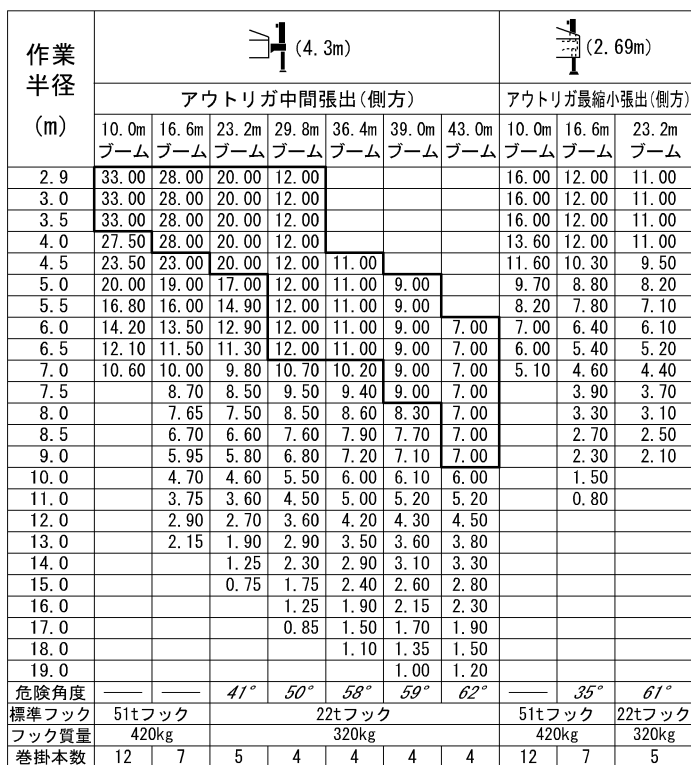 作業 半径 (m)
(4.3m) (2.69m)
アウトリガ中間張出(側方) アウトリガ最縮小張出(側方)
10.0m ブーム 16.6m ブーム 23.2m ブーム 29.8m ブーム 36.4m ブーム 39.0m ブーム 43.0m ブーム 10.0m ブーム 16.6m ブーム 23.2m ブーム
2.9 33.00 28.00 20.00 12.00 16.00 12.00 11.00
3.0 33.00 28.00 20.00 12.00 16.00 12.00 11.00
3.5 33.00 28.00 20.00 12.00 16.00 12.00 11.00
4.0 27.50 28.00 20.00 12.00 13.60 12.00 11.00
4.5 23.50 23.00 20.00 12.00 11.00 11.60 10.30 9.50
5.0 20.00 19.00 17.00 12.00 11.00 9.00 9.70 8.80 8.20
5.5 16.80 16.00 14.90 12.00 11.00 9.00 8.20 7.80 7.10
6.0 14.20 13.50 12.90 12.00 11.00 9.00 7.00 7.00 6.40 6.10
6.5 12.10 11.50 11.30 12.00 11.00 9.00 7.00 6.00 5.40 5.20
7.0 10.60 10.00 9.80 10.70 10.20 9.00 7.00 5.10 4.60 4.40
7.5 8.70 8.50 9.50 9.40 9.00 7.00 3.90 3.70
8.0 7.65 7.50 8.50 8.60 8.30 7.00 3.30 3.10
8.5 6.70 6.60 7.60 7.90 7.70 7.00 2.70 2.50
9.0 5.95 5.80 6.80 7.20 7.10 7.00 2.30 2.10
10.0 4.70 4.60 5.50 6.00 6.10 6.00 1.50
11.0 3.75 3.60 4.50 5.00 5.20 5.20 0.80
12.0 2.90 2.70 3.60 4.20 4.30 4.50
13.0 2.15 1.90 2.90 3.50 3.60 3.80
14.0 1.25 2.30 2.90 3.10 3.30
15.0 0.75 1.75 2.40 2.60 2.80
16.0 1.25 1.90 2.15 2.30
17.0 0.85 1.50 1.70 1.90
18.0 1.10 1.35 1.50
19.0 1.00 1.20
危険角度 ── ── 41° 50° 58° 59° 62° ── 35° 61°
標準フック 51tフック 22tフック 51tフック 22tフック
フック質量 420kg 320kg 420kg 320kg
巻掛本数 12 7 5 4 4 4 4 12 7 5